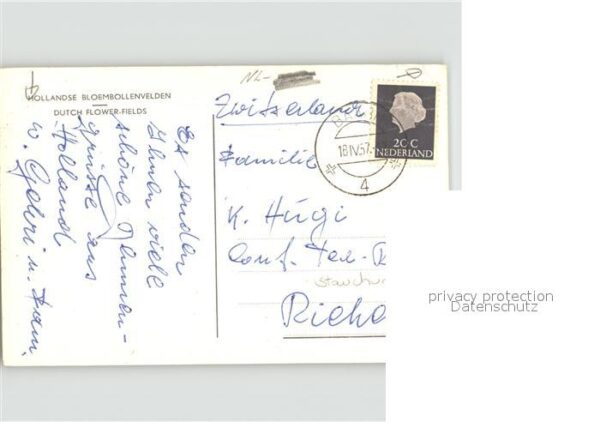 NL-
HOLLANDSE BLOEMBOLLENVELDEN
DUTCH FLOWER-FIELDS
Es senden
Ihnen viele
schöne Blumen-
grüsse aus
Holland
W. Gehri u. Fam.
Zwitserland
Familie
K. Hügi
Conf. Tea-R
Riehe
20 C
NEDERLAND
18 IV.57.
4
privacy protection
Datenschutz